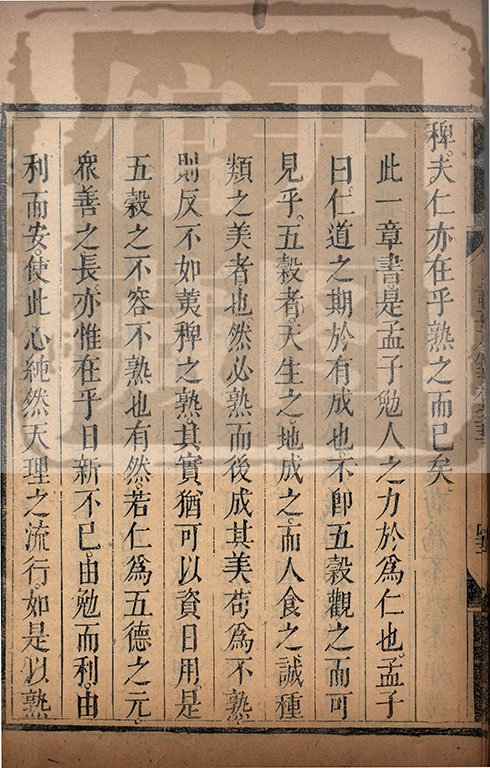 稗。夫仁亦在乎熟之而已矣
此一章書。是孟子勉人之力於爲仁也。孟子
曰。仁道之期於有成也。不卽五穀觀之而可
見乎。五穀者。天生之。地成之。而人食之。誠種
類之美者也。然必熟而後成其美。苟爲不熟
則反不如荑稗之熟。其實猶可以資日用。是
五穀之不容不熟也有然。若仁爲五德之元。
衆善之長。亦惟在乎日新不已。由勉而利。由
利而安。使此心純然天理之流行。如是以熟